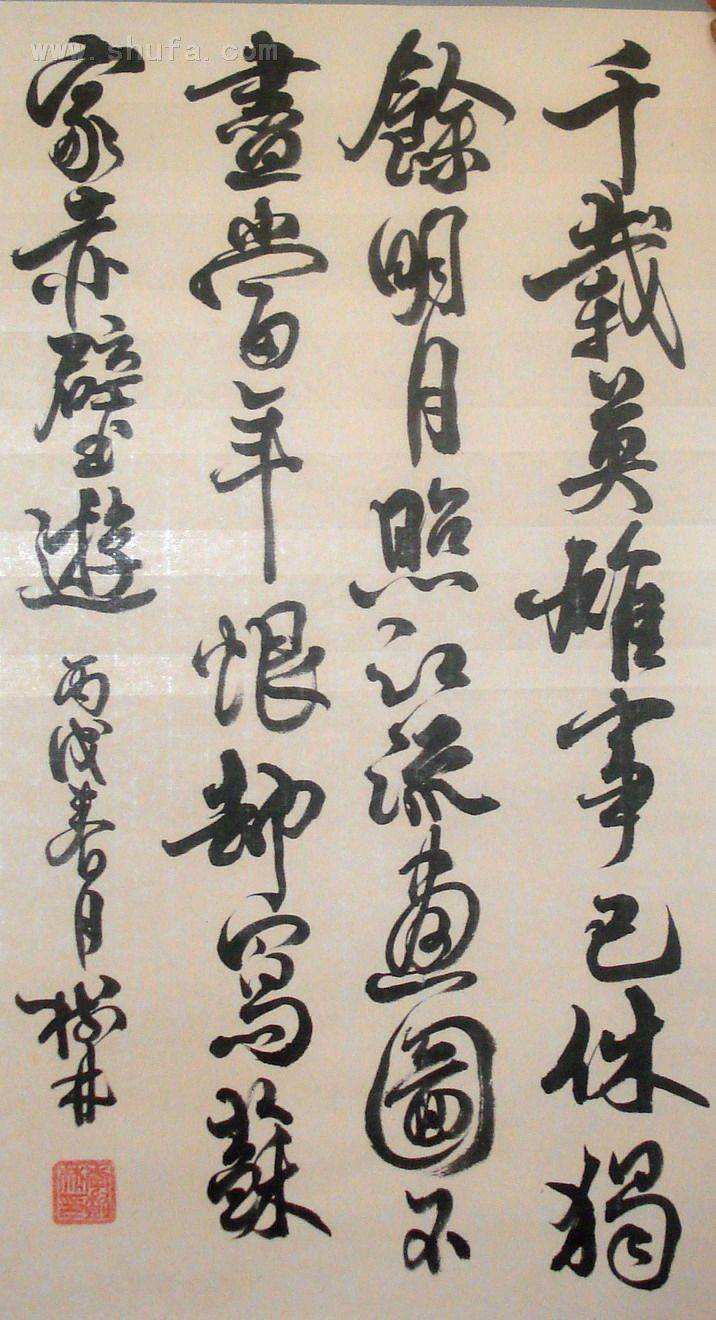 千載英雄事已休獨
餘明月照江流畫圖不
盡當年恨却寫蘇
家赤壁遊
丙戌春月樹井
www.shufa.com